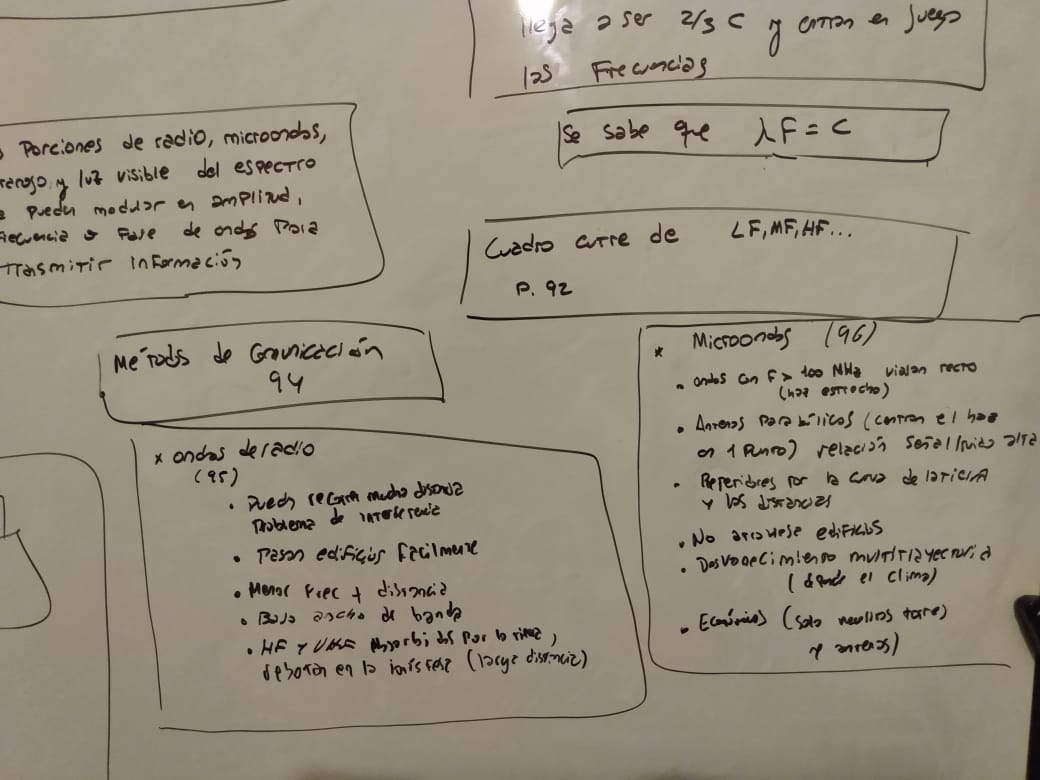 llega a ser 2/3 C y entran en juego
las Frecuencias
Se sabe que λF = C
Porciones de radio, microondas,
y luz visible del espectro
pueden modular en amplitud,
Frecuencia o Fase de ondas Para
Trasmitir información
Cuadro entre de LF, MF, HF...
P. 92
Métodos de Comunicación
94
x ondas de radio
(95)
• Pueden recorrer mucha distancia
Problema de interferencia
• Pasan edificios Facilmente
• Menor Frec + distancia
• Bajo ancho de banda
• HF y VHF Absorbidas Por la tierra,
rebotan en la ionsfera (larga distancia)
* Microondas (96)
• ondas con F > 100 MHz viajan recto
(haz estrecho)
• Antenas Parabólicas (centran el haz
en 1 Punto) relación señal/ruido alta
• Repetidores por la curva de la tierra
y las distancias
• No atraviesa edificios
• Desvanecimiento multitrayectoria
( el clima)
• Económicos (solo necesitas torre)
y antenas)